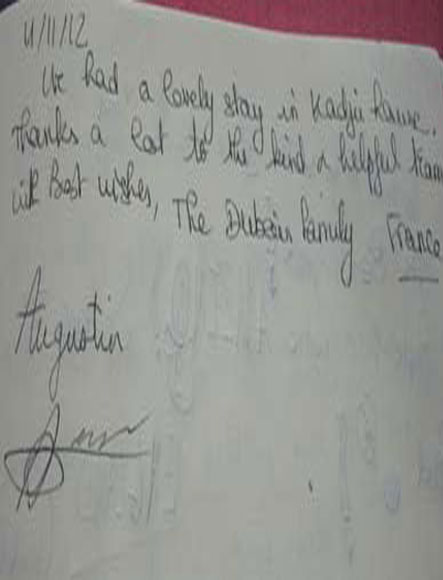 11/11/12
We had a lovely stay in Kadju house.
Thanks a lot to the kind & helpful team
with Best wishes, The Dubois family France
Augustin